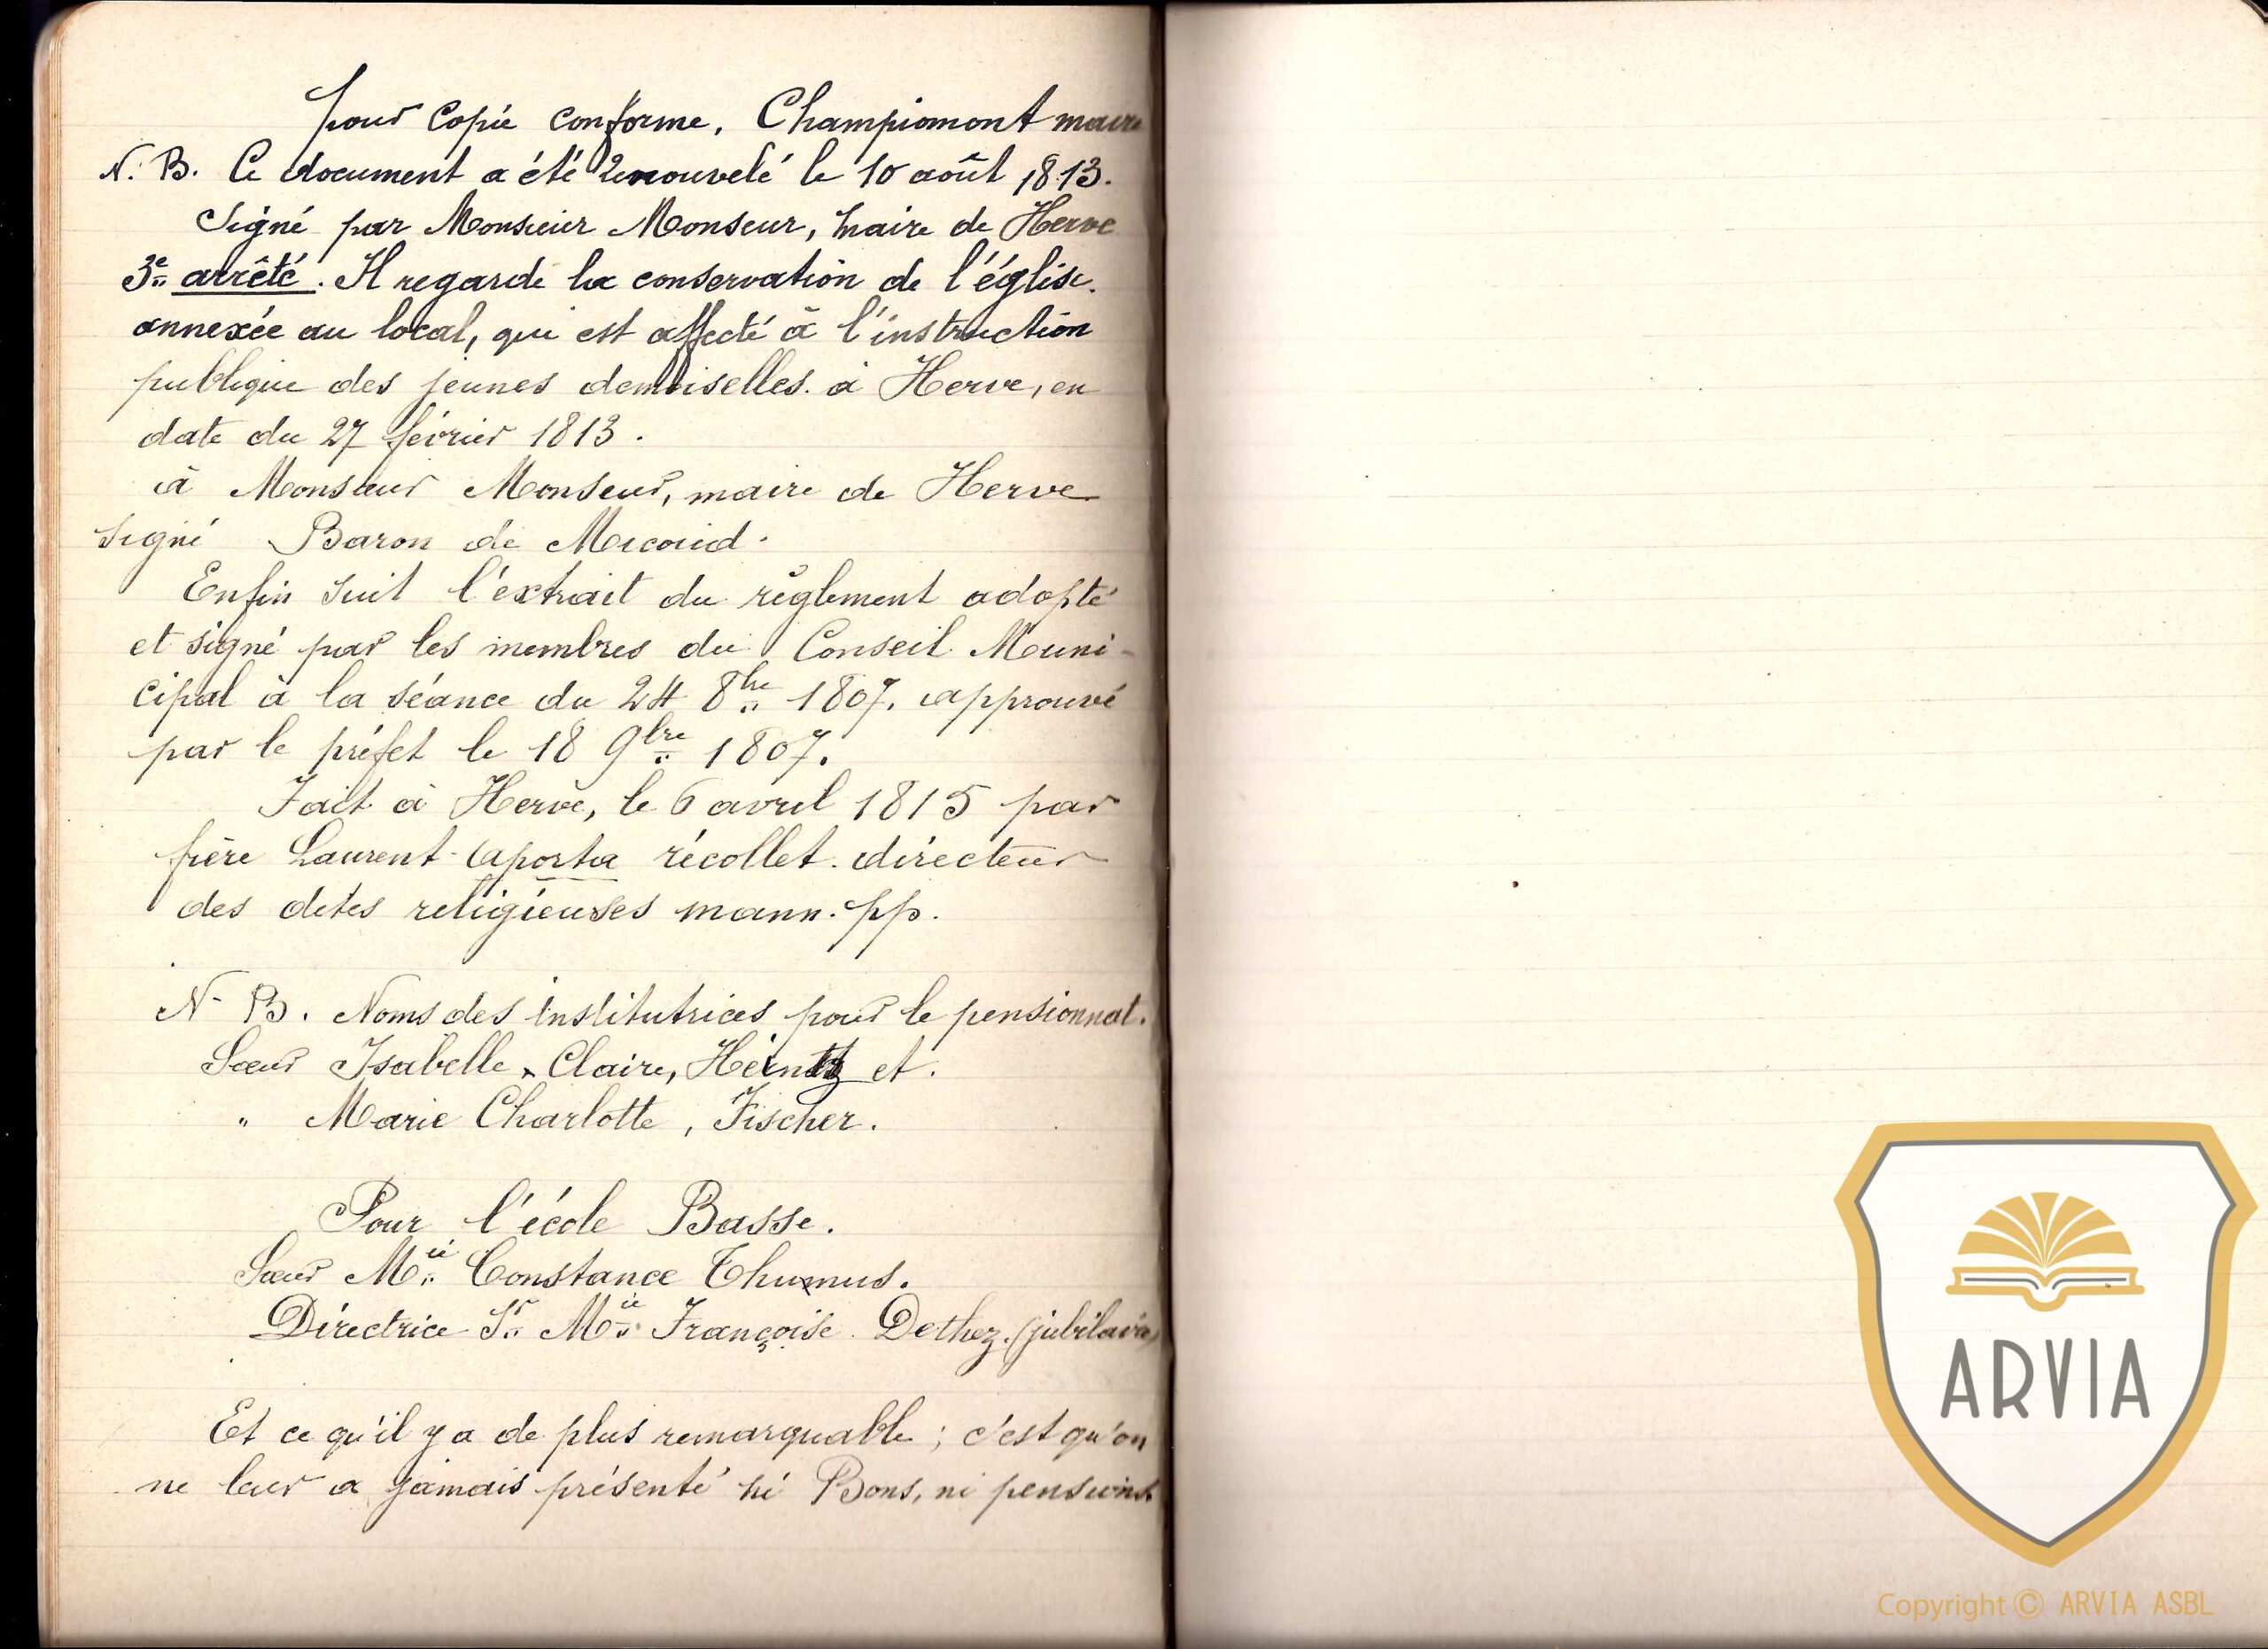 pour copie conforme. Champiomont maire
N. B. Ce document a été renouvelé le 10 août 1813.
Signé par Monsieur Monseur, maire de Herve
3e arrêté. Il regarde la conservation de l'église.
annexée au local, qui est affecté à l'instruction
publique des jeunes demoiselles. à Herve, en
date du 27 février 1813.
à Monsieur Monseur, maire de Herve
signé Baron de Micoud.
Enfin suit l'extrait du règlement adopté
et signé par les membres du Conseil Muni-
cipal à la séance du 24 8bre 1807. approuvé
par le préfet le 18 9bre 1807.
Fait à Herve, le 6 avril 1815 par
frère Laurent Aporta récollet. directeur
des dites religieuses mann. pp.
N. B. Noms des institutrices pour le pensionnat.
Sœur Isabelle Claire, Heintz et.
" Marie Charlotte, Fischer.
Pour l'école Basse.
Sœur Mie Constance Thumus.
Directrice Sr Mie Françoise Dethez. (jubilaire)
Et ce qu'il y a de plus remarquable; c'est qu'on
ne leur a jamais présenté ni Bons, ni pensions.
ARVIA
Copyright © ARVIA ASBL